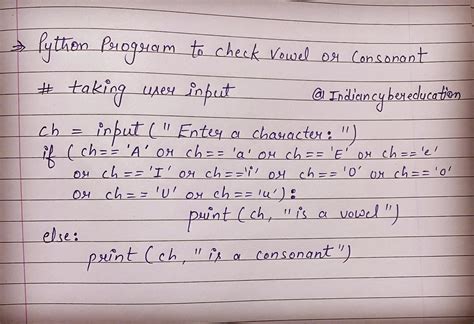 ⇒ Python Program to check Vowel or Consonant
# taking user input @Indiancybereducation
ch = input ("Enter a character: ")
if (ch=='A' or ch=='a' or ch=='E' or ch=='e'
or ch=='I' or ch=='i' or ch=='O' or ch=='o'
or ch=='U' or ch=='u'):
print (ch, "is a vowel")
else:
print (ch, "is a consonant")